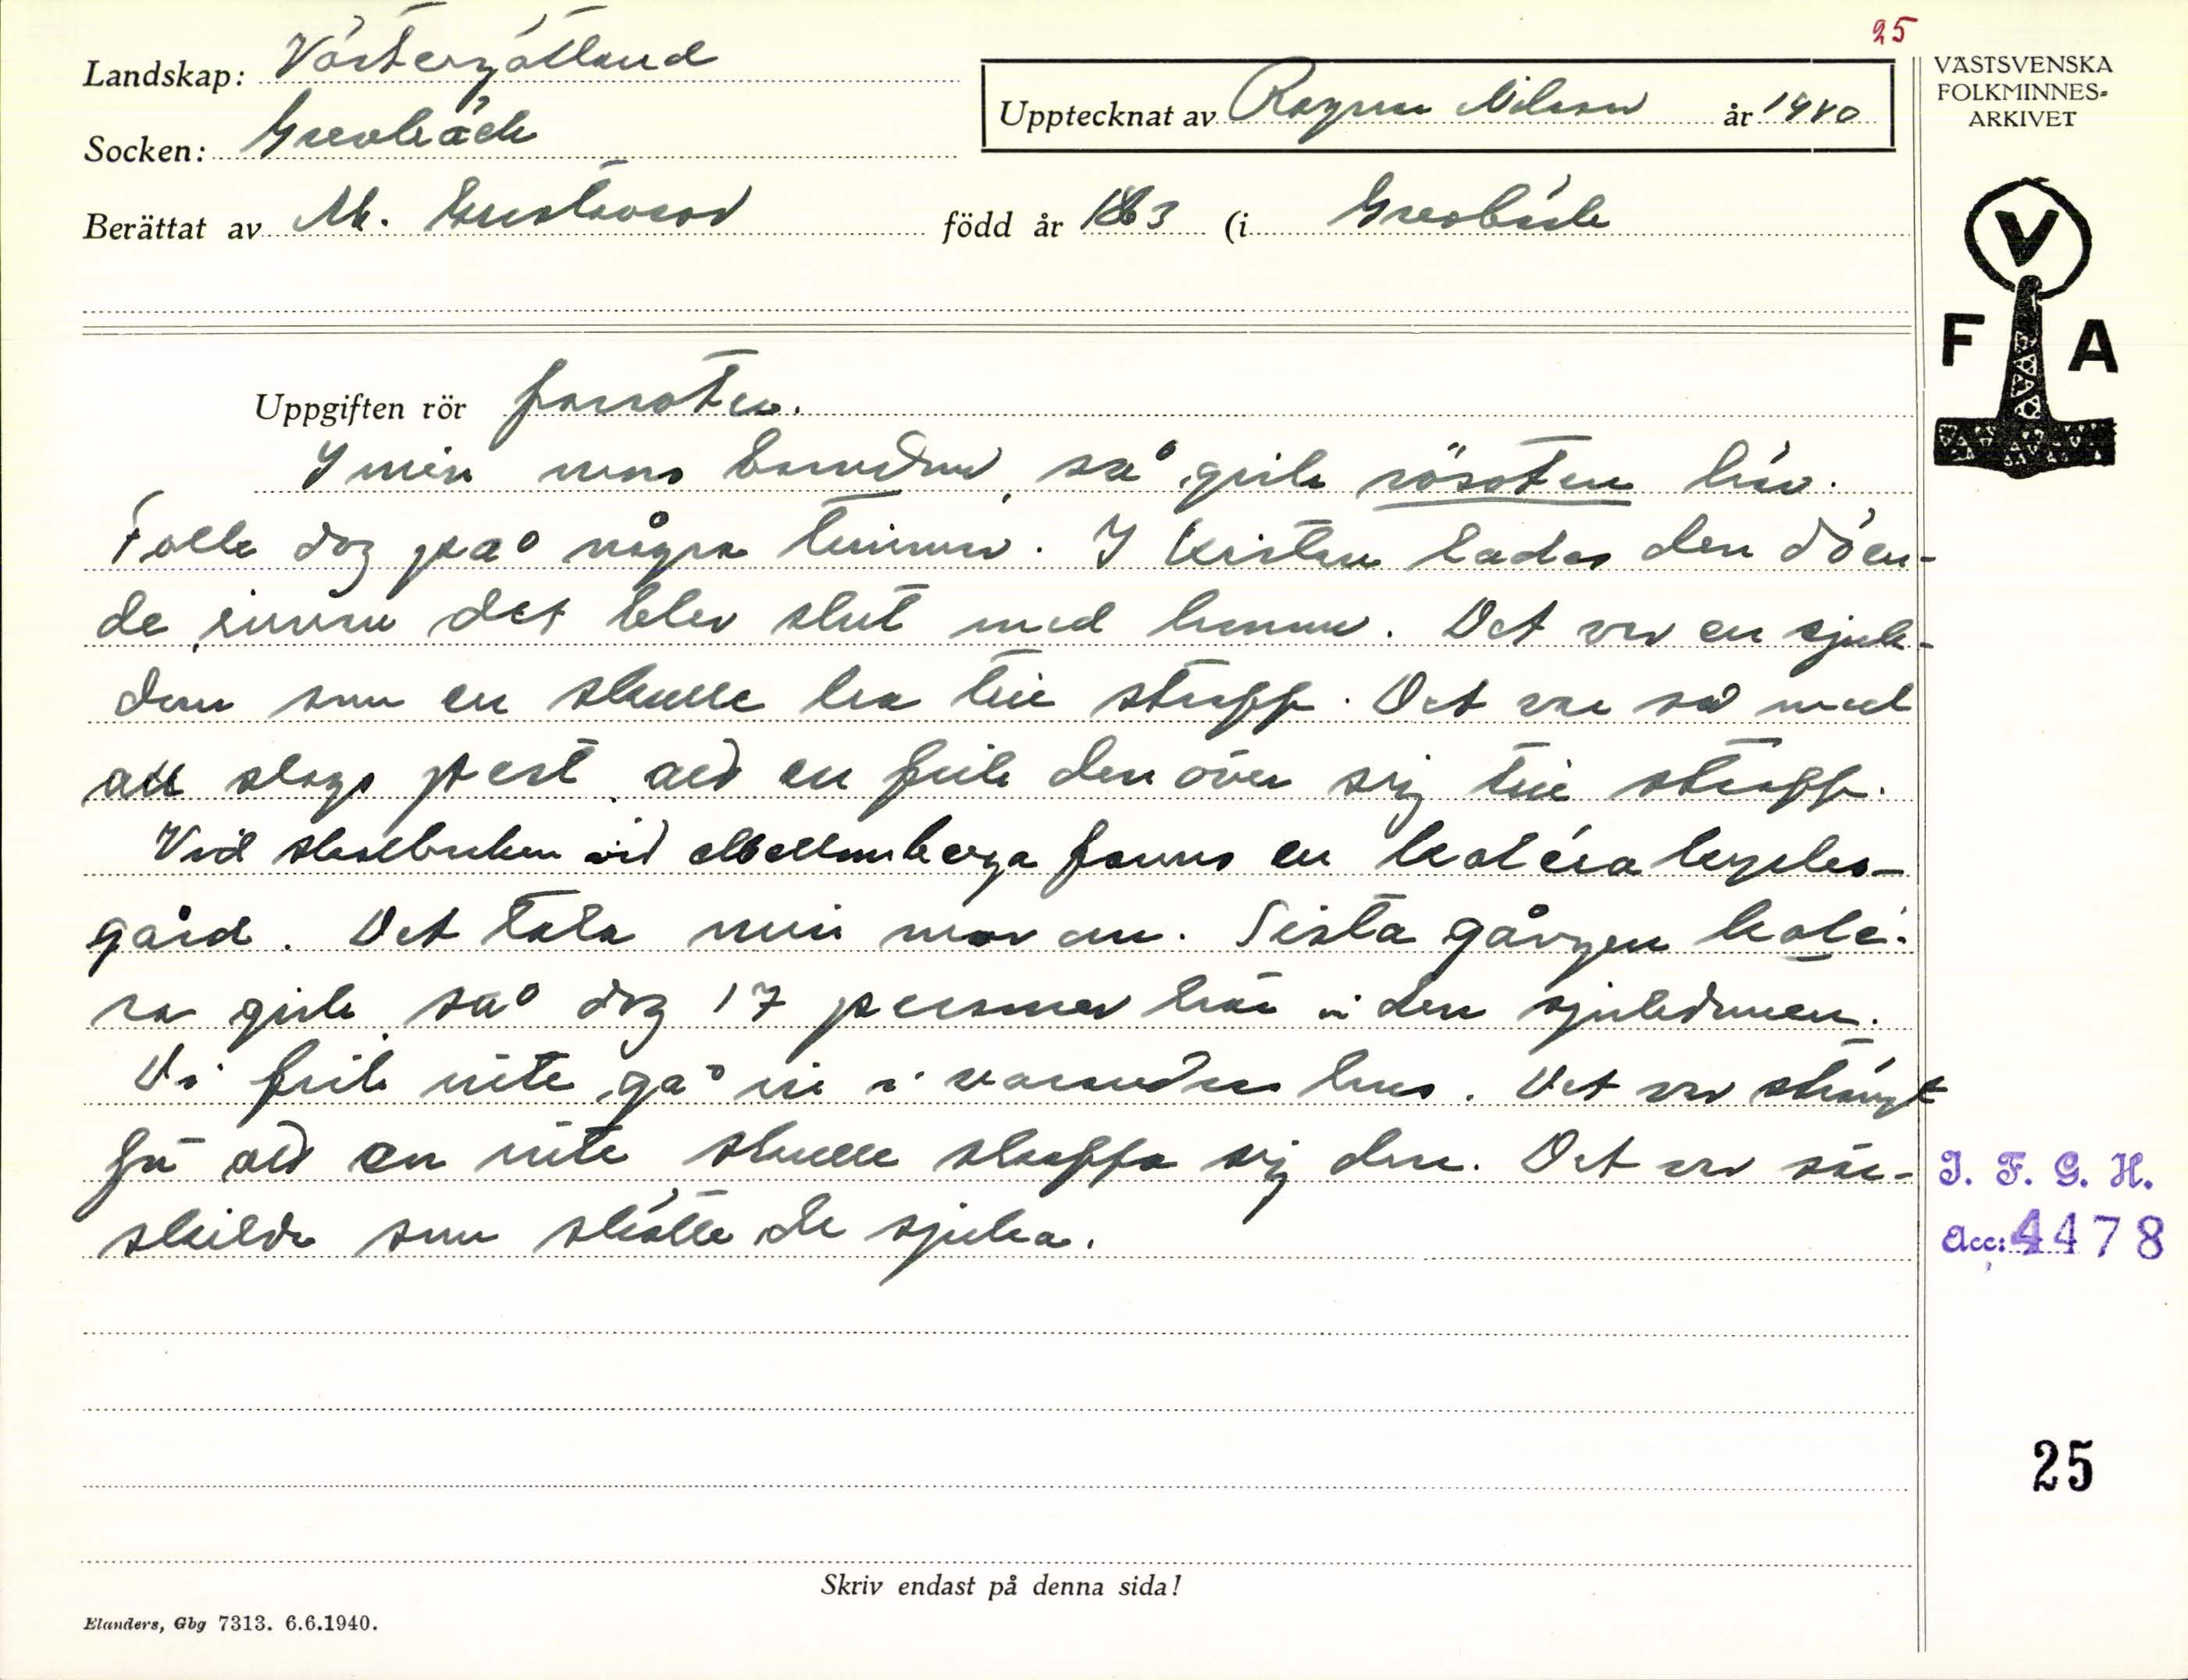 25
Landskap: Västergötland
Upptecknat av Ragnar Nilsson år 1940
VÄSTSVENSKA
FOLKMINNES-
ARKIVET
Socken: Grevbäck
Berättat av M. Gustavsson född år 1863 (i Grevbäck
V
F A
Uppgiften rör farsoten.
I min mors barndom, så gick rösoten här.
Folk dog på några timmar. I kistan lades den döen-
de, innan det blev slut med honom. Det var en sjuk-
dom som en skulle ha till straff. Det var så med
all slags pest, att en fick den över sig till straff.
Vid skolbacken vid Mellomberga fanns en kolérakyrko-
gård. Det tala min mor om. Sista gången kolé-
ra gick, så dog 17 personer här i den sjukdomen.
Vi fick inte gå in i varandras hus. Det var strängt
för att en inte skulle skaffa sig den. Det var sär-
skilda som skötte de sjuka.
I. F. G. H.
Acc: 4478
25
Skriv endast på denna sida!
Elanders, Gbg 7313. 6.6.1940.